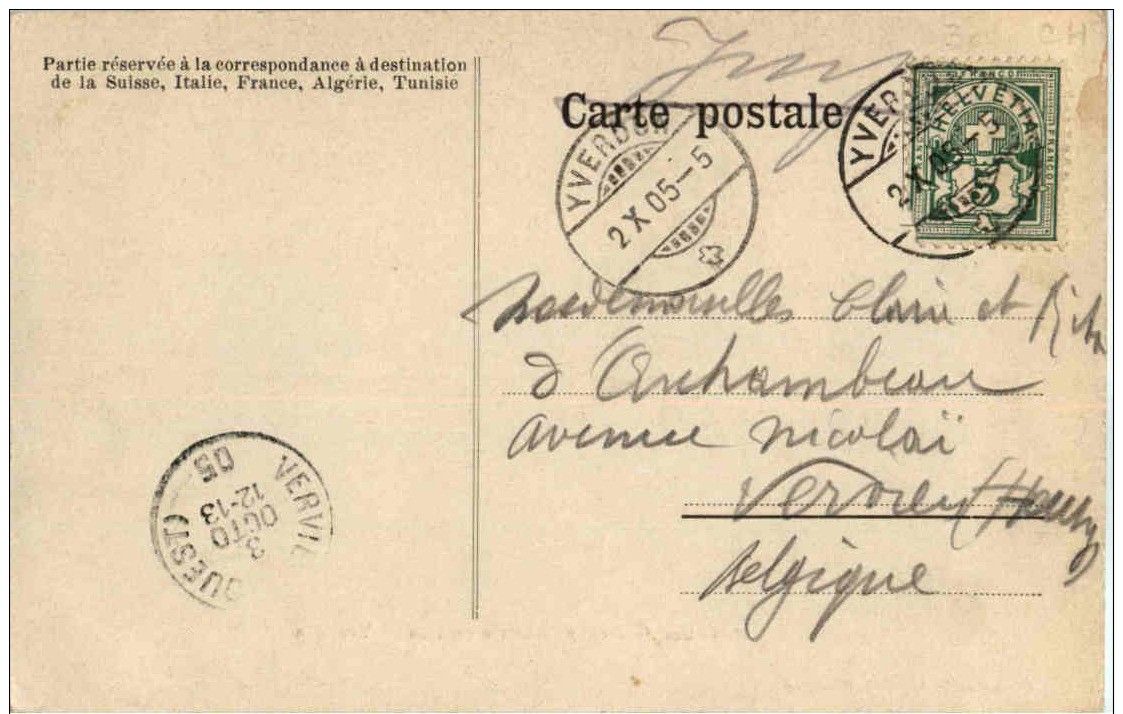 Partie réservée à la correspondance à destination
de la Suisse, Italie, France, Algérie, Tunisie
Carte postale
YVERDON
2 X 05-5
YVER
2 X 05-5
FRANCO
HELVETIA
FRANCO
5
Mesdemoiselles Claire et Rita
d'Archambeau
avenue Nicolaï
Belgique
VERVIE
OUEST)
3
OCT
12-13
05